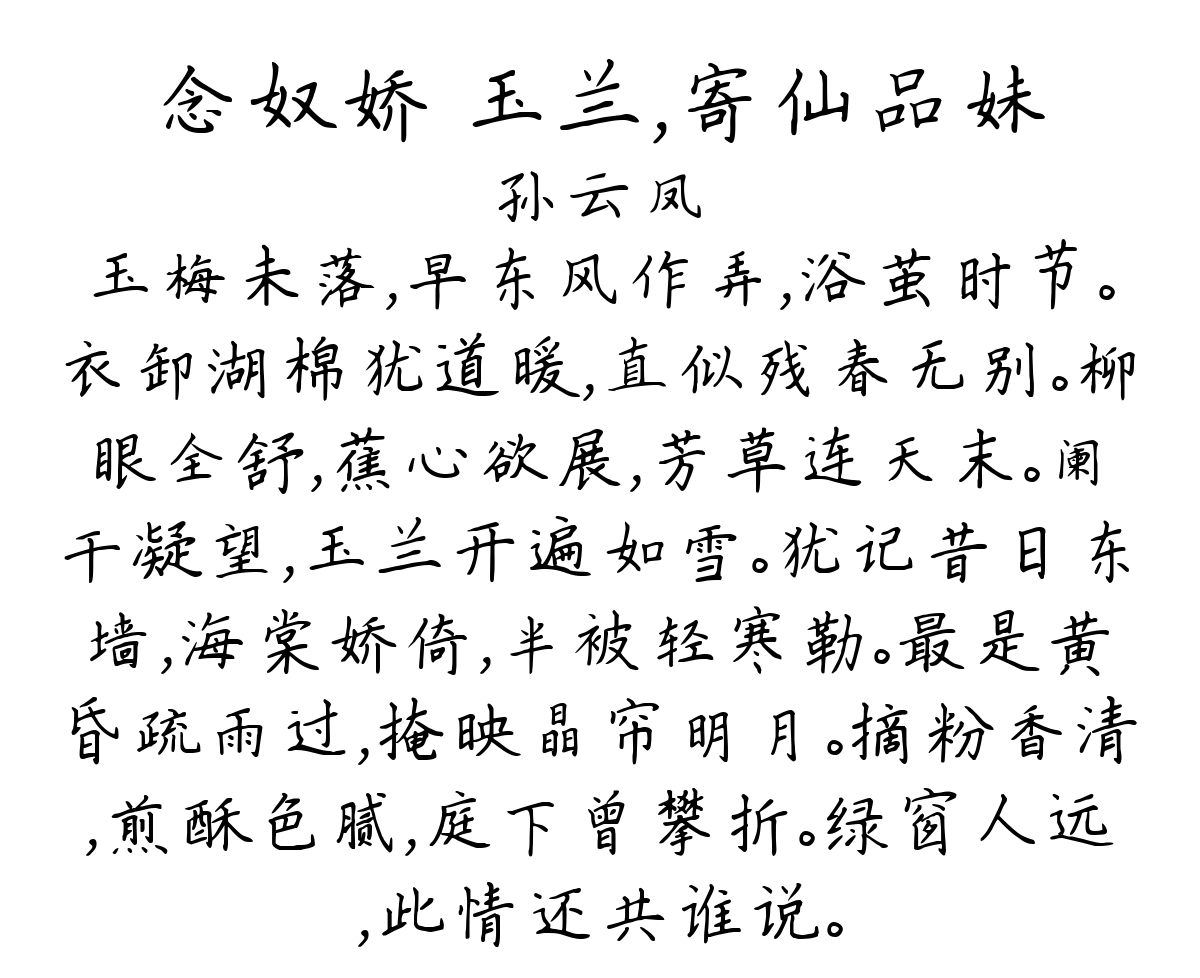 念奴娇 玉兰,寄仙品妹
孙云凤
玉梅未落,早东风作弄,浴茧时节。
衣卸湖棉犹道暖,直似残春无别。柳
眼全舒,蕉心欲展,芳草连天末。阑
干凝望,玉兰开遍如雪。犹记昔日东
墙,海棠娇倚,半被轻寒勒。最是黄
昏疏雨过,掩映晶帘明月。摘粉香清
,煎酥色腻,庭下曾攀折。绿窗人远
,此情还共谁说。